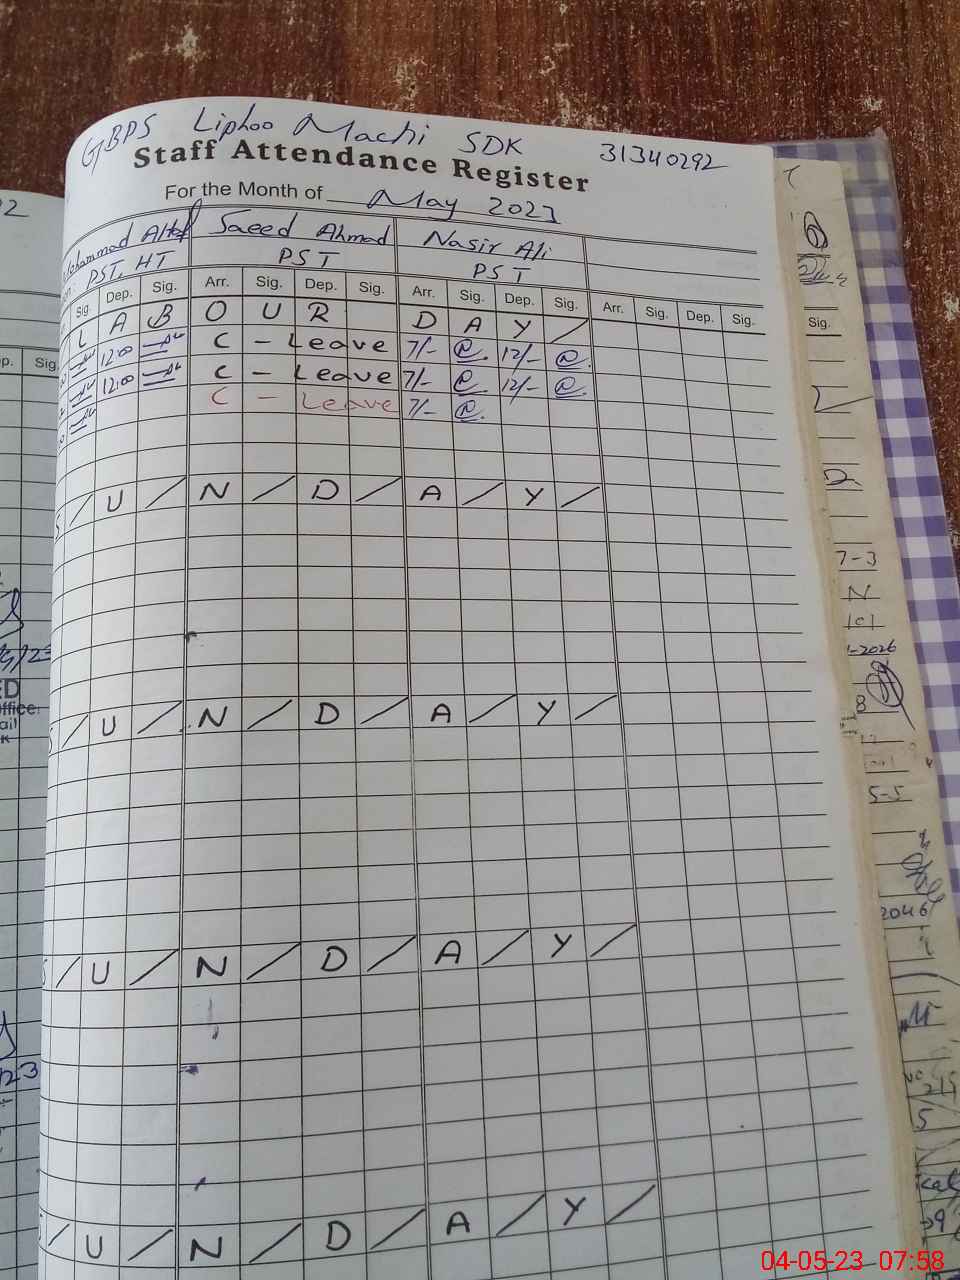 GBPS Liphoo Machi SDK 31340292
Staff Attendance Register
For the Month of May 2023
Mohammad Altaf Saeed Ahmad Nasir Ali
PST, HT PST PST
Sig. Dep. Sig. Arr. Sig. Dep. Sig. Arr. Sig. Dep. Sig. Arr. Sig. Dep. Sig.
L A B O U R D A Y /
12:00 C - Leave 7/- 12/-
12:00 C - Leave 7/- 12/-
C - Leave 7/-
S / U / N / D / A / Y /
S / U / N / D / A / Y /
S / U / N / D / A / Y /
S / U / N / D / A / Y /
Sig.
7-3
N
1-2026
8
5-5
2046
5
04-05-23 07:58